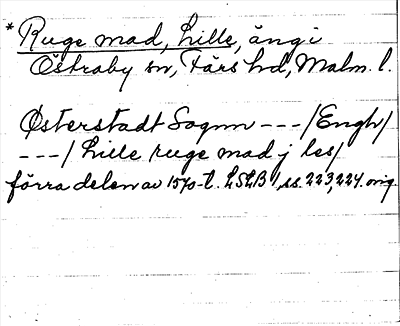 * Ruge mad, Lille, äng i
Östraby sn, Färs hd, Malm. l.
Østerstadt Sognn --- /Engh/
--- / Lille ruge mad j les/
förra delen av 1570-t. LSLB, ss. 223, 224. orig.